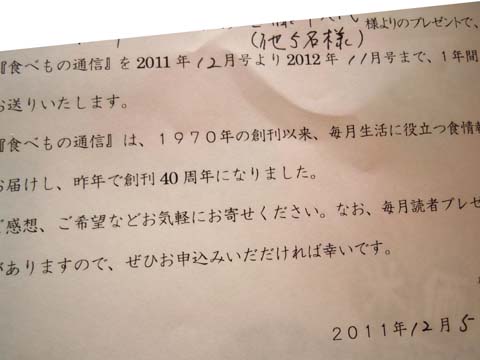 様よりのプレゼントで、
(他5名様)
『食べもの通信』を2011年12月号より2012年11月号まで、1年間
お送りいたします。
『食べもの通信』は、1970年の創刊以来、毎月生活に役立つ食情報
お届けし、昨年で創刊40周年になりました。
ご感想、ご希望などお気軽にお寄せください。なお、毎月読者プレゼ
がありますので、ぜひお申込みいただければ幸いです。
2011年12月5